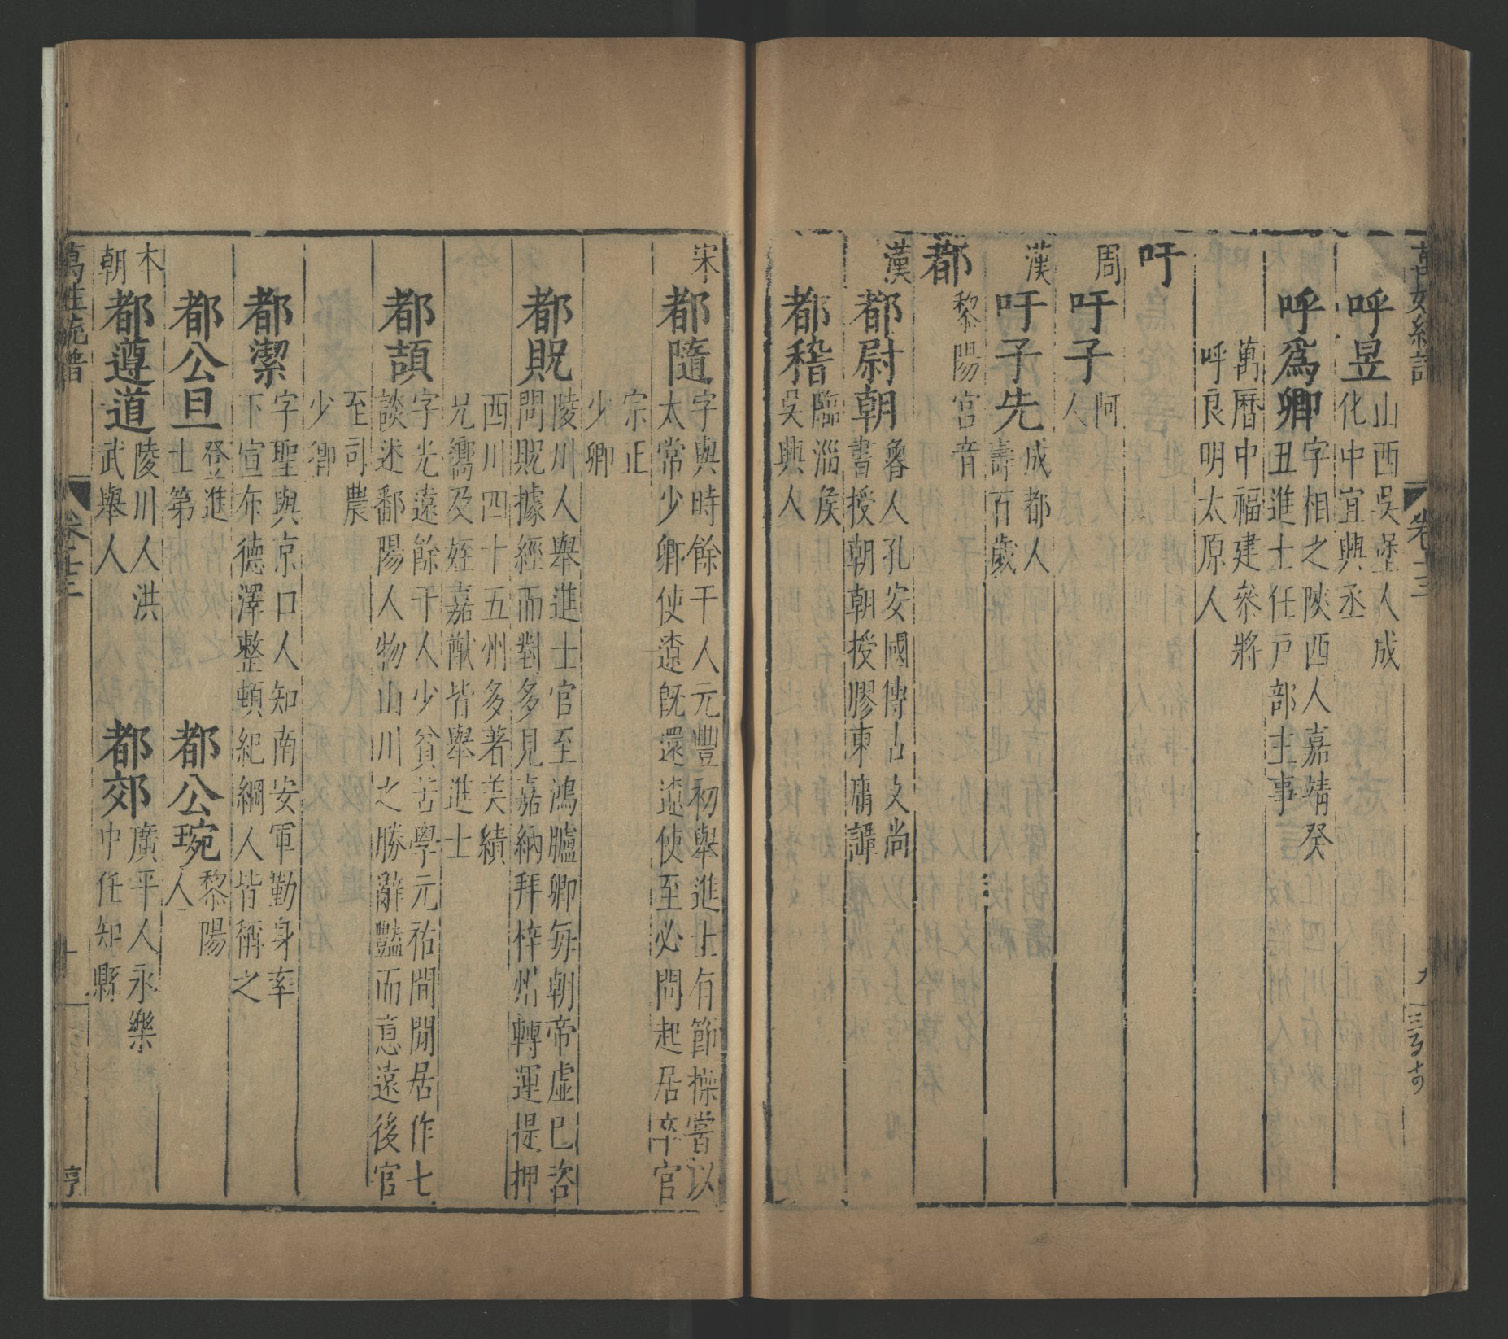 呼昱山西吳堡人成
化中宜興丞
呼爲卿字相之陝西人嘉靖癸
丑進士任戸部主事
萬曆中福建叅將
呼良明太原人
吁
周
吁子人阿
漢
吁子先成都人
壽百歲
都黎陽宮音
漢
都尉朝魯人孔安國傳古文尚
書授朝朝授膠東庸譚
都稽臨淄侯
吳興人
宋
都隨字與時餘干人元豐初舉進士有節操嘗以
太常少卿使遼既還遼使至必問起居卒官
宗正
少卿
都貺陵川人舉進士官至鴻臚卿每朝帝虛已咨
問貺據經而對多見嘉納拜梓州轉運提押
西川四十五州多著美績
兄𢍰及姪嘉猷皆舉進士
都頡字光遠餘干人少貧苦學元祐間閒居作七
談述鄱陽人物山川之勝辭豔而意遠後官
至司農
少卿
都潔字聖與京口人知南安軍勤身率
下宣布德澤整頓紀綱人皆稱之
都公旦登進
士第
都公琬黎陽
人
本
朝
都遵道陵川人洪
武舉人
都郊廣平人永樂
中任知縣
萬姓統譜
卷十三
十
亨